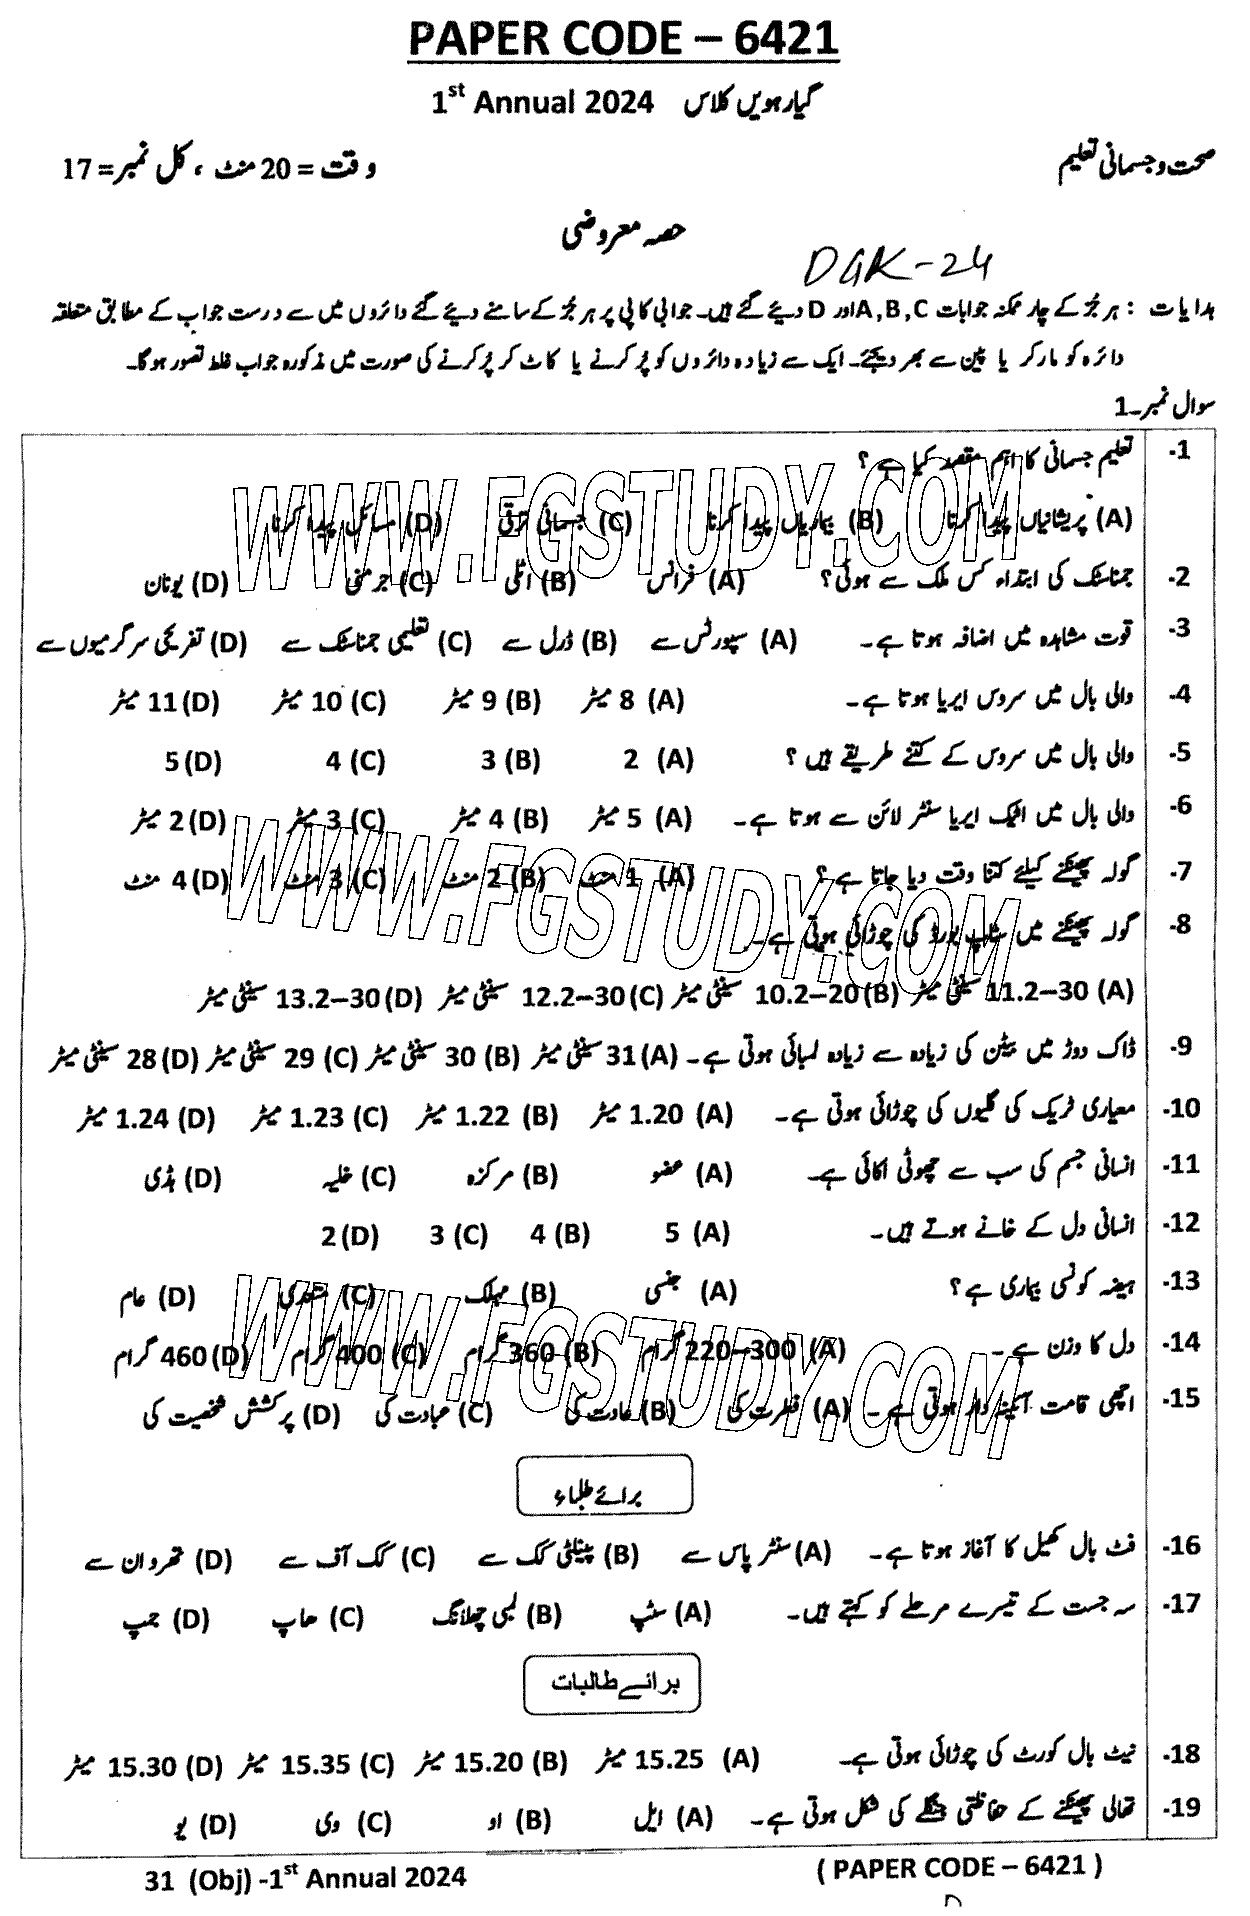 PAPER CODE – 6421
1st Annual 2024 گیارہویں کلاس
صحت و جسمانی تعلیم وقت = 20 منٹ ، کل نمبر = 17
حصہ معروضی
DGK-24
ہدایات : ہر جُز کے چار ممکنہ جوابات A,B,C اور D دیئے گئے ہیں۔ جوابی کاپی پر ہر جُز کے سامنے دیئے گئے دائروں میں سے درست جواب کے مطابق متعلقہ
دائرہ کو مارکر یا پین سے بھر دیجئے۔ ایک سے زیادہ دائروں کو پُر کرنے یا کاٹ کر پُر کرنے کی صورت میں مذکورہ جواب غلط تصور ہوگا۔
سوال نمبر۔1
1- تعلیم جسمانی کا اہم مقصد کیا ہے ؟
(A) پریشانیاں پیدا کرنا (B) بیماریاں پیدا کرنا (C) جسمانی ترقی (D) مسائل پیدا کرنا
2- جمناسٹک کی ابتداء کس ملک سے ہوئی؟ (A) فرانس (B) اٹلی (C) جرمنی (D) یونان
3- قوت مشاہدہ میں اضافہ ہوتا ہے۔ (A) سپورٹس سے (B) ڈرل سے (C) تعلیمی جمناسٹک سے (D) تفریحی سرگرمیوں سے
4- والی بال میں سروس ایریا ہوتا ہے۔ (A) 8 میٹر (B) 9 میٹر (C) 10 میٹر (D) 11 میٹر
5- والی بال میں سروس کے کتنے طریقے ہیں ؟ (A) 2 (B) 3 (C) 4 (D) 5
6- والی بال میں اٹیک ایریا سنٹر لائن سے ہوتا ہے۔ (A) 5 میٹر (B) 4 میٹر (C) 3 میٹر (D) 2 میٹر
7- گولہ پھینکنے کیلئے کتنا وقت دیا جاتا ہے ؟ (A) 1 منٹ (B) 2 منٹ (C) 3 منٹ (D) 4 منٹ
8- گولہ پھینکنے میں سٹاپ بورڈ کی چوڑائی ہوتی ہے۔
(A) 11.2–30 سینٹی میٹر (B) 10.2–20 سینٹی میٹر (C) 12.2–30 سینٹی میٹر (D) 13.2–30 سینٹی میٹر
9- ڈاک دوڑ میں بیٹن کی زیادہ سے زیادہ لمبائی ہوتی ہے۔ (A) 31 سینٹی میٹر (B) 30 سینٹی میٹر (C) 29 سینٹی میٹر (D) 28 سینٹی میٹر
10- معیاری ٹریک کی گلیوں کی چوڑائی ہوتی ہے۔ (A) 1.20 میٹر (B) 1.22 میٹر (C) 1.23 میٹر (D) 1.24 میٹر
11- انسانی جسم کی سب سے چھوٹی اکائی ہے۔ (A) عضو (B) مرکزہ (C) خلیہ (D) ہڈی
12- انسانی دل کے خانے ہوتے ہیں۔ (A) 5 (B) 4 (C) 3 (D) 2
13- ہیضہ کونسی بیماری ہے؟ (A) جنسی (B) مہلک (C) متعدی (D) عام
14- دل کا وزن ہے ۔ (A) 220–300 گرام (B) 360 گرام (C) 400 گرام (D) 460 گرام
15- اچھی قامت آئینہ دار ہوتی ہے ۔ (A) فطرت کی (B) عادت کی (C) عبادت کی (D) پرکشش شخصیت کی
برائے طلباء
16- فٹ بال کھیل کا آغاز ہوتا ہے۔ (A) سنٹر پاس سے (B) پینلٹی کک سے (C) کک آف سے (D) تھرو ان سے
17- سہ جست کے تیسرے مرحلے کو کہتے ہیں۔ (A) سٹپ (B) لمبی چھلانگ (C) ہاپ (D) جمپ
برائے طالبات
18- نیٹ بال کورٹ کی چوڑائی ہوتی ہے۔ (A) 15.25 میٹر (B) 15.20 میٹر (C) 15.35 میٹر (D) 15.30 میٹر
19- تھالی پھینکنے کے حفاظتی جنگلے کی شکل ہوتی ہے۔ (A) ایل (B) او (C) وی (D) یو
31 (Obj) -1st Annual 2024 ( PAPER CODE – 6421 )
WWW.FGSTUDY.COM
WWW.FGSTUDY.COM
WWW.FGSTUDY.COM